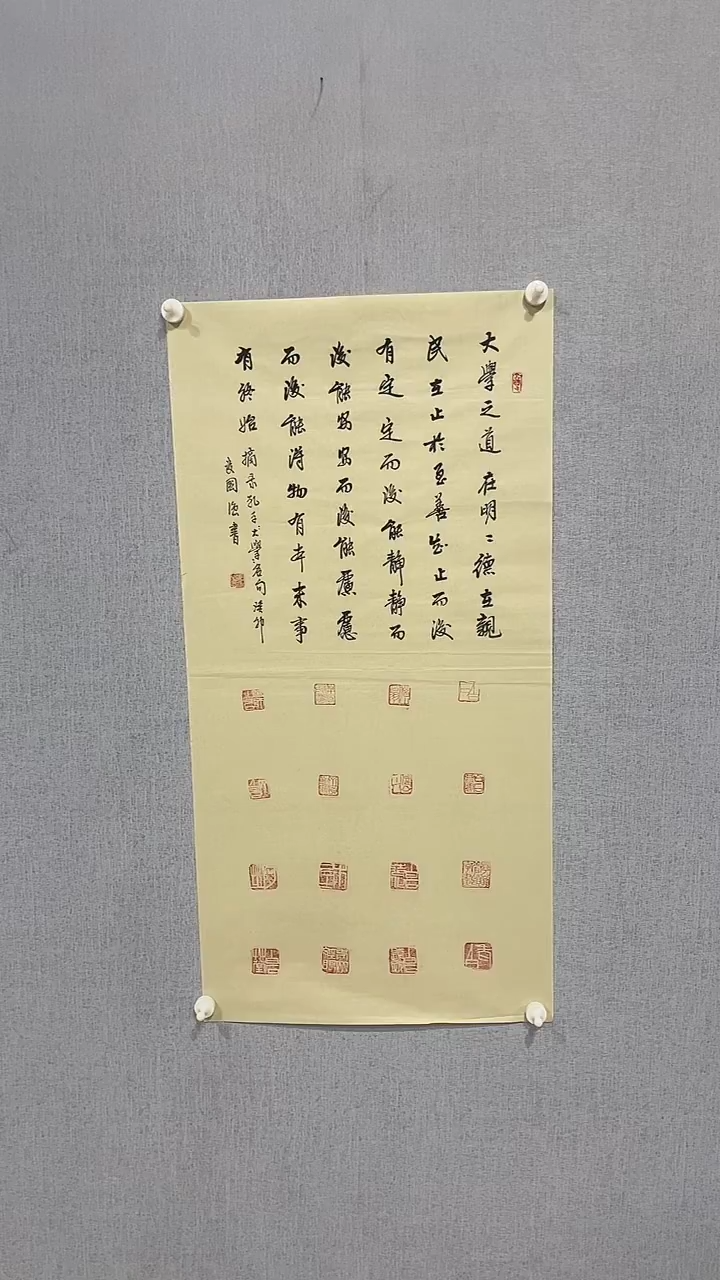 大學之道在明〻德在親
民在止於至善知止而後
有定定而後能静静而
後能安安而後能慮慮
而後能得物有本末事
有終始
摘录孔子大學名句
國强書